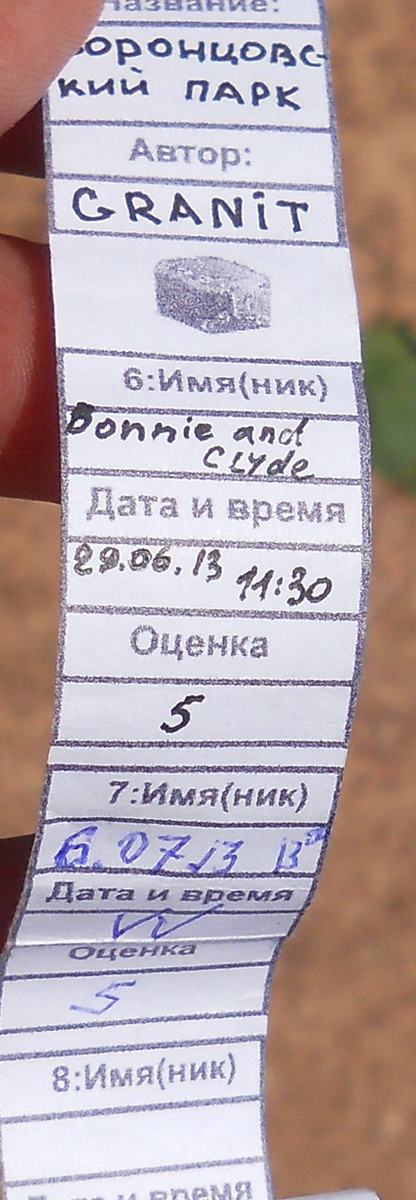 Название:
Воронцовс-
кий ПАРК
Автор:
GRANiT
6:Имя(ник)
Bonnie and
Clyde
Дата и время
29.06.13 11:30
Оценка
5
7:Имя(ник)
6.07.13
Дата и время
Оценка
5
8:Имя(ник)
Дата и время